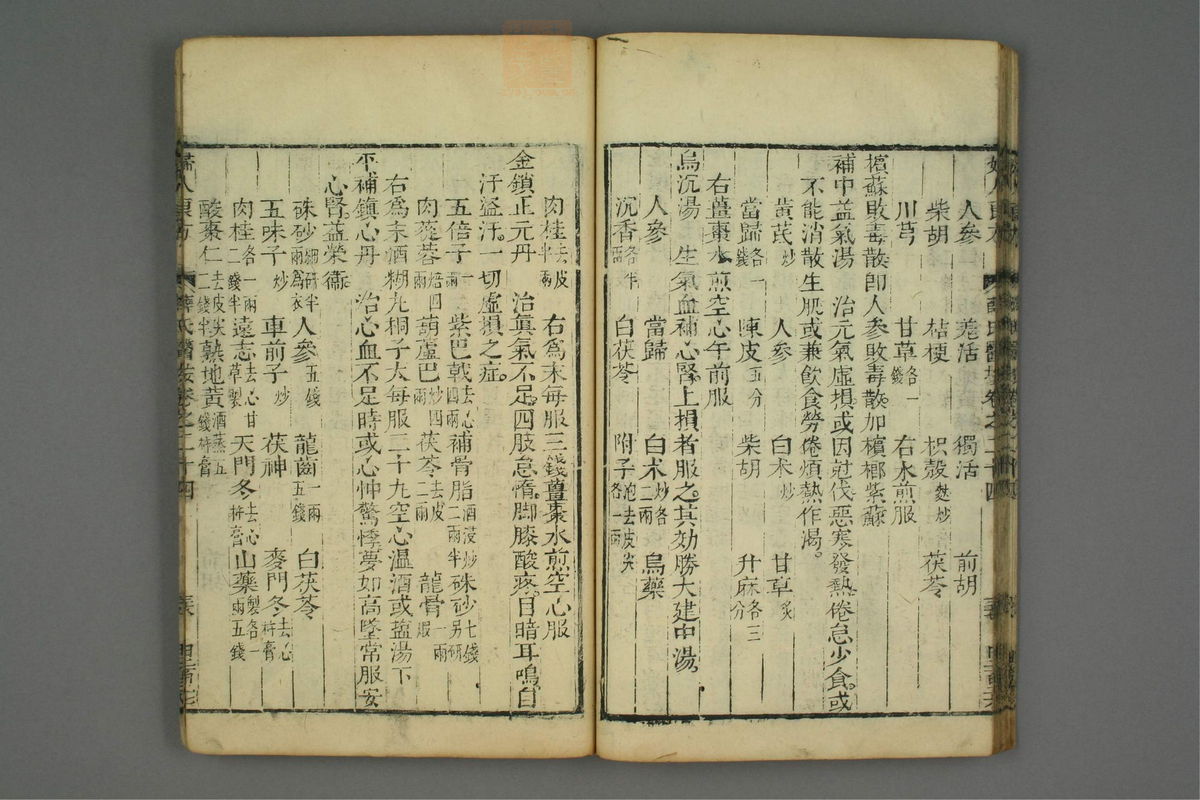 人參　羗活　獨活　前胡
柴胡　桔梗　枳殼麩炒　茯苓
川芎　甘草各一錢　右水煎服
檳蘇敗毒散卽人參敗毒散加檳榔紫蘇
補中益氣湯　治元氣虛損或因尅伐惡寒發熱倦怠少食或
不能消散生肌或兼飲食勞倦煩熱作渴
黃芪炒　人參　白朮炒　甘草炙
當歸各一錢　陳皮五分　柴胡　升麻各三分
右薑棗水煎空心午前服
烏沉湯　生氣血補心腎上損者服之其効勝大建中湯
人參　當歸　白朮炒各二兩　烏藥
沉香各半兩　白茯苓　附子炮去皮尖各一兩
肉桂去皮半兩　右爲末每服三錢薑棗水煎空心服
金鎖正元丹　治眞氣不足四肢怠惰脚膝酸疼目暗耳鳴自
汗盜汗一切虛損之症
五倍子一兩　紫巴戟去心四兩　補骨脂酒浸炒二兩半　硃砂七錢另研
肉蓯蓉焙四兩　葫蘆巴炒四兩　茯苓去皮二兩　龍骨一兩煆
右爲末酒糊丸桐子大每服二十九空心温酒或塩湯下
平補鎮心丹　治心血不足時或心忡驚悸夢如高墜常服安
心腎益榮衞
硃砂細研半兩爲衣　人參五錢　龍齒一兩五錢　白茯苓
五味子炒　車前子炒　茯神　麥門冬去心杵膏
肉桂各一兩二錢半　遠志去心甘草製　天門冬去心杵膏　山藥製各一兩五錢
酸棗仁去皮尖二錢半　熟地黃酒蒸五錢杵膏
婦人良方　薛氏醫按卷之二十四